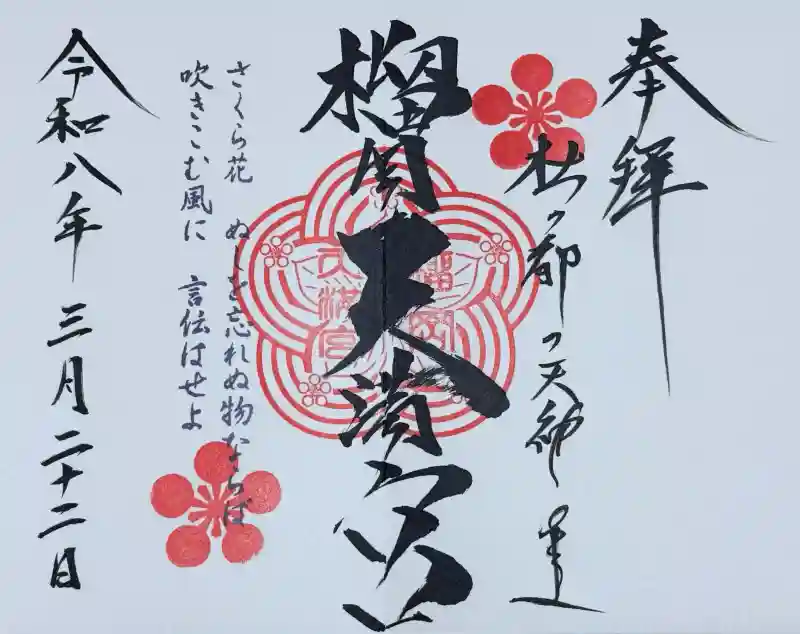 奉拝
杜の都の天神さま
榴岡天満宮
さくら花 ぬしを忘れぬ物ならば
吹きこむ風に 言伝はせよ
令和八年 三月 二十二日
榴岡
天満宮